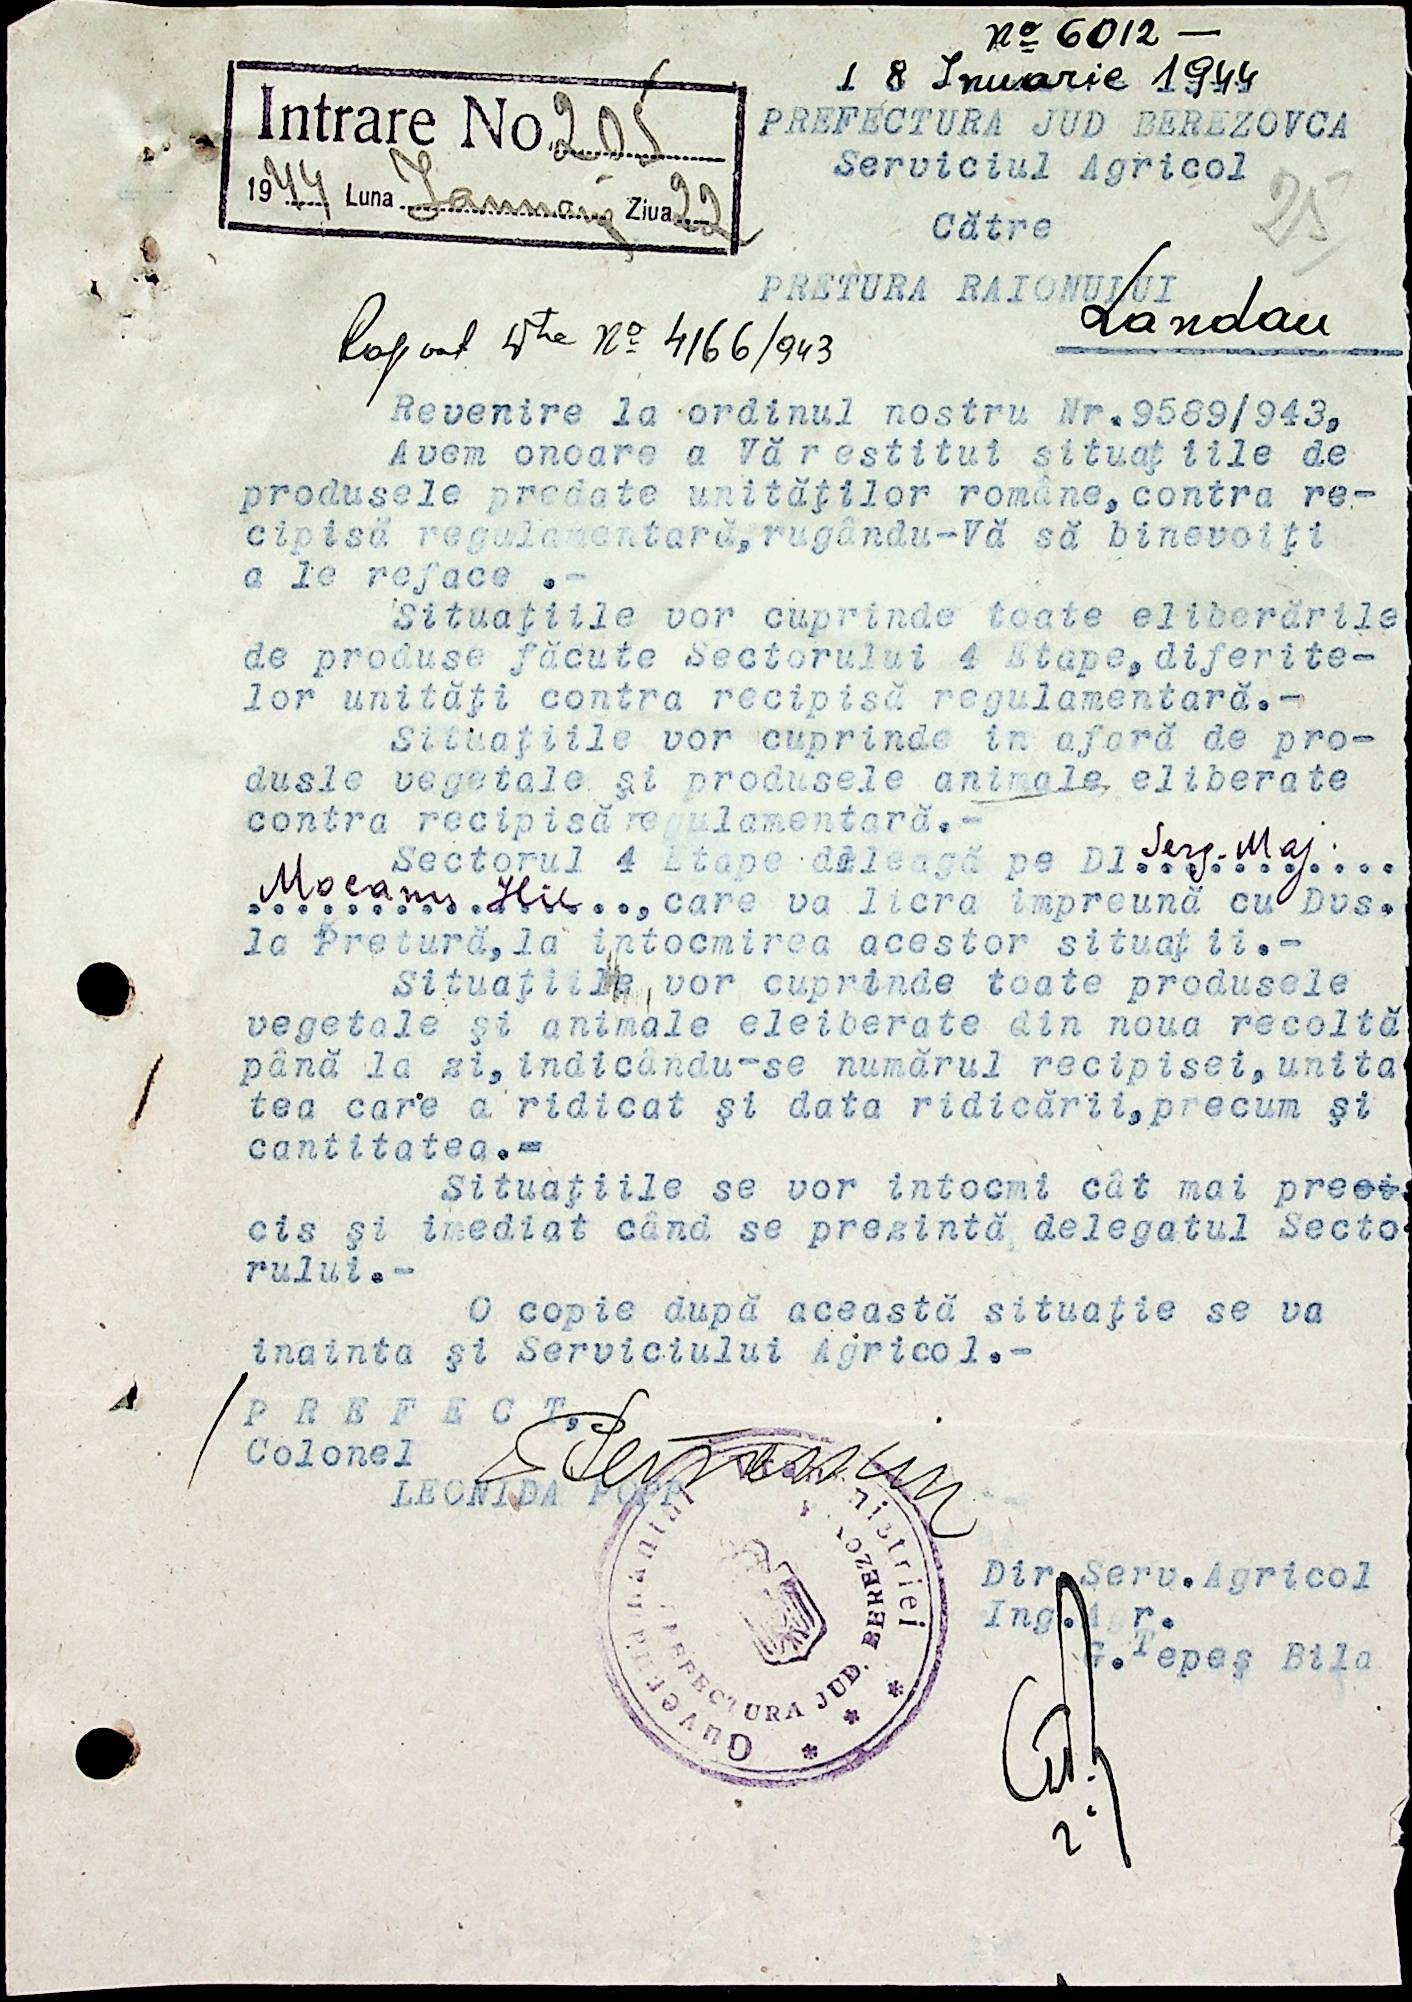 No 6012 —
18 Inuarie 1944
Intrare No. 205
1944 Luna Ziua 22
PREFECTURA JUD BEREZOVCA
Serviciul Agricol
25
Către
PRETURA RAIONULUI Landau
No 4166/943
Revenire la ordinul nostru Nr.9589/943,
Avem onoare a Vă restitui situaţiile de
produsele predate unităţilor române,contra re-
cipisă regulamentară,rugându-Vă să binevoiţi
a le reface .-
Situaţiile vor cuprinde toate eliberările
de produse făcute Sectorului 4 Etape,diferite-
lor unităţi contra recipisă regulamentară.-
Situaţiile vor cuprinde in afară de pro-
dusle vegetale şi produsele animale, eliberate
contra recipisă regulamentară.-
Sectorul 4 Etape deleagă pe Dl. Serg. Maj.
Mocanu Ilie..,care va licra impreună cu Dvs.
la Pretură,la intocmirea acestor situaţii.-
Situaţiile vor cuprinde toate produsele
vegetale şi animale eleiberate din noua recoltă
până la zi,indicându-se numărul recipisei,unita
tea care a ridicat şi data ridicării,precum şi
cantitatea.-
Situaţiile se vor intocmi cât mai pre
cis şi imediat când se prezintă delegatul Secto-
rului.-
O copie după această situaţie se va
inainta şi Serviciului Agricol.-
P R E F E C T,
Colonel
LEONIDA POPP
Guvernământul nistriei
PREFECTURA JUD. BEREZO
Dir.Serv.Agricol
Ing.Agr.
G.Tepeş Bila